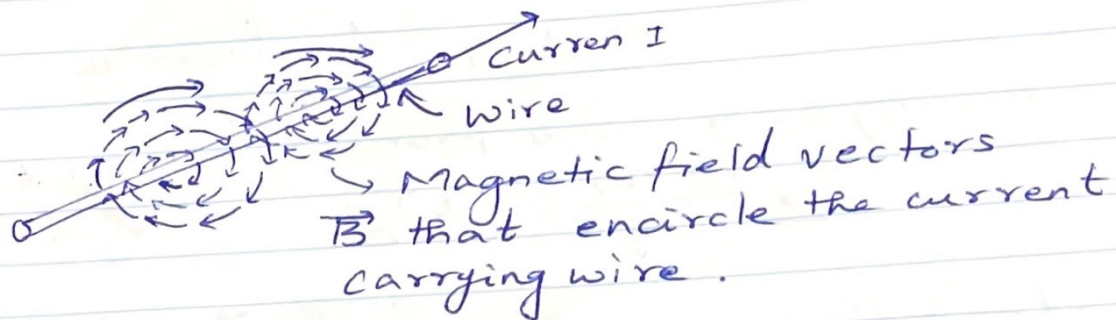 Curren I
Wire
Magnetic field vectors
B⃗ that encircle the current
carrying wire.